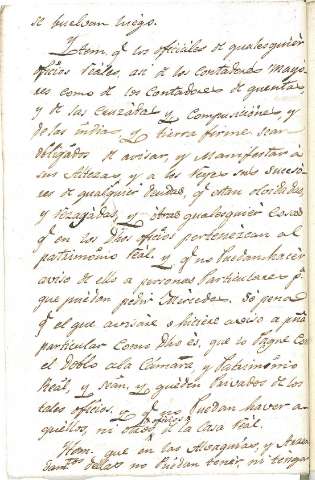 se buelvan luego.
Yttem. q.e los oficiales de qualesquier
oficios Reales, asi de los Contadores Mayo-
res como de los Contadores de quentas
y de las Cruzadas y Composiciones, y
de las indias, y tierra firme sean
obligados de avisar, y Manifestar à
sus Altezas, y a los Reyes sus suceso-
res de qualquier deudas, q.e estan olvidadas,
y rezagadas, y otras qualesquier Cosas
q.e en los dhos oficios pertenezcan al
patrimonio Real, y q.e no puedan hacer
aviso de ello a personas Particulares p.a
que puedan pedir Mercedes. só pena
q.e el que avisare ó hiciere aviso a p.na
particular como dho es, que lo Pague con
el Doblo a la Camara y Patrimonio
Real, y sean, y queden Privados de los
tales oficios, y q.e no Puedan haver a-
quellos, ni otros oficios de la Casa Real.
Yttem. que en las Alvaquias, y
dellas no Puedan tener, ni tengan